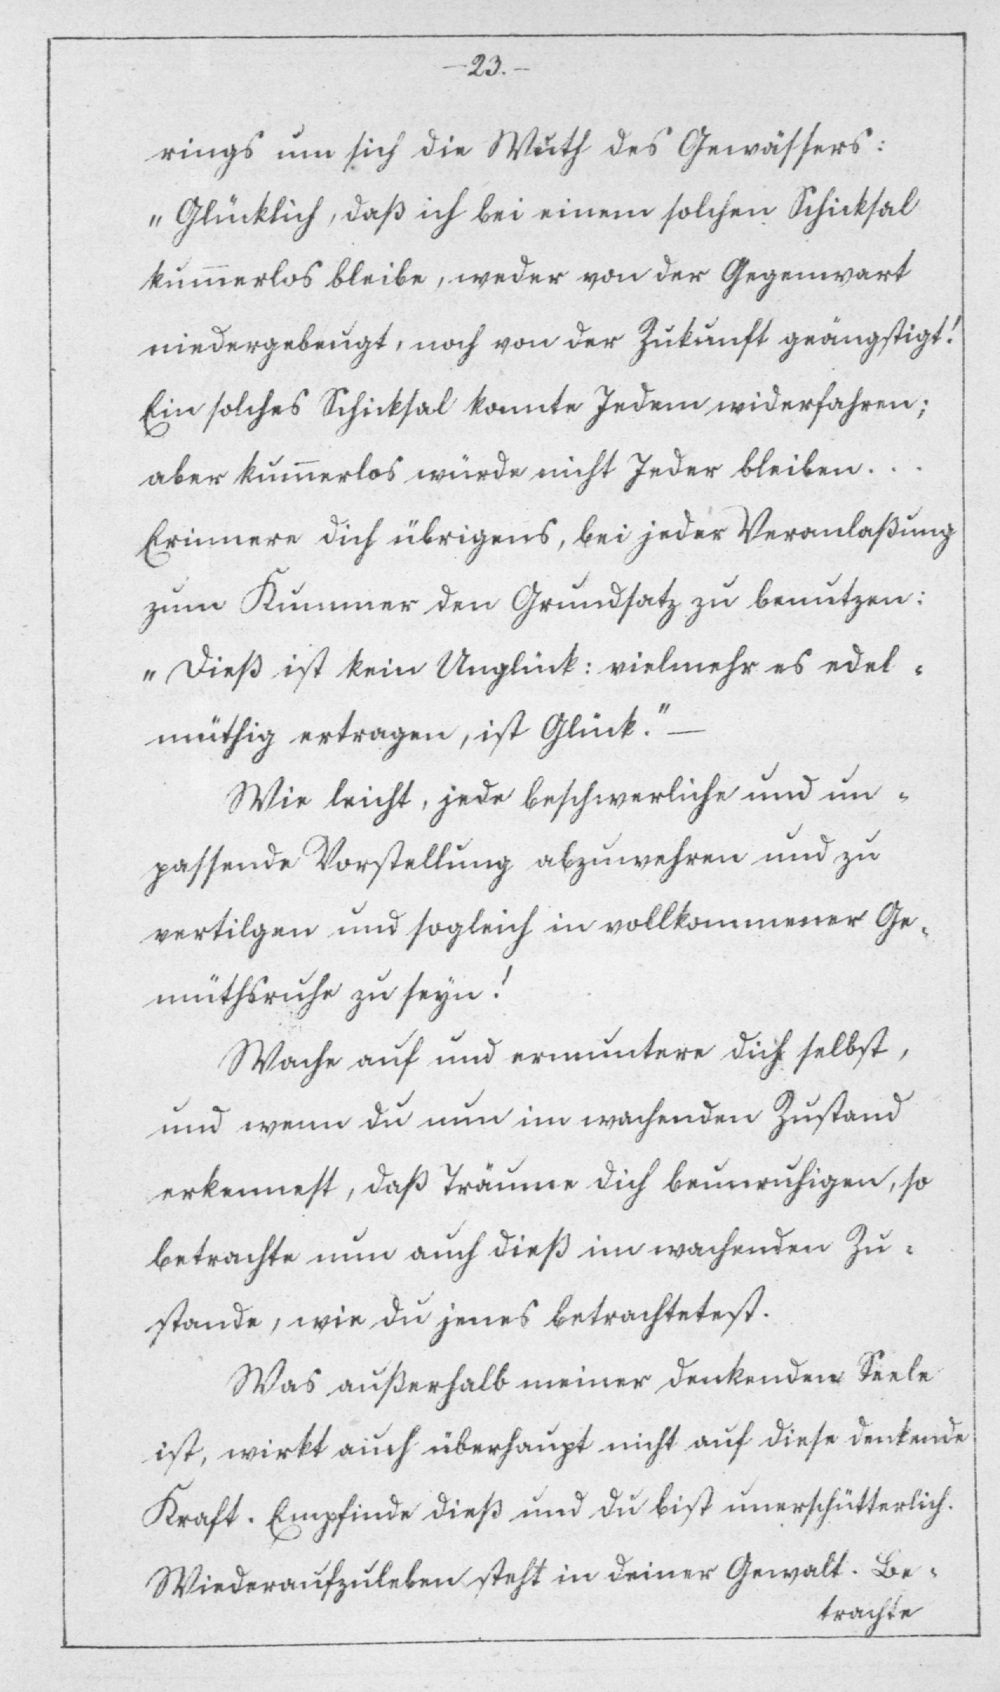 -23.-
rings um sich die Wuth des Gewässers:
„Glücklich, daß ich bei einem solchen Schicksal
kum̅erlos bleibe, weder von der Gegenwart
niedergebeugt, noch von der Zukunft geängstigt!
Ein solches Schicksal konnte Jedem widerfahren;
aber kum̅erlos würde nicht Jeder bleiben...
Erinnere dich übrigens, bei jeder Veranlaßung
zum Kummer den Grundsatz zu benutzen:
„Dieß ist kein Unglück: vielmehr es edel-
müthig ertragen, ist Glück."—
Wie leicht, jede beschwerliche und un-
passende Vorstellung abzuwehren und zu
vertilgen und sogleich in vollkommener Ge-
müthsruhe zu seyn!
Wache auf und ermuntere dich selbst,
und wenn du nun im wachenden Zustand
erkennest, daß Träume dich beunruhigen, so
betrachte nun auch dieß im wachenden Zu-
stande, wie du jenes betrachtetest.
Was außerhalb meiner denkenden Seele
ist, wirkt auch überhaupt nicht auf diese denkende
Kraft. Empfinde dieß und du bist unerschütterlich.
Wiederaufzuleben steht in deiner Gewalt. Be-
trachte